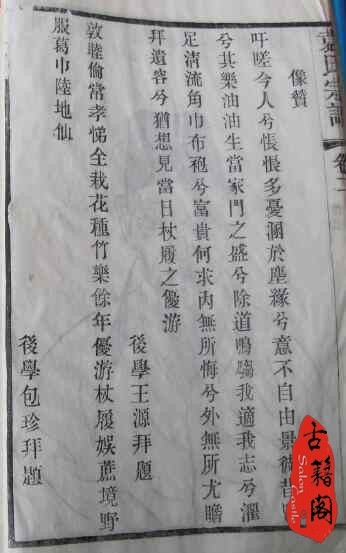 像贊
吁嗟今人兮悵悵多憂溷於塵緣兮意不自由景彼昔
兮其樂油油生當家門之盛兮除道鳴騶我適我志兮濯
足清流角巾布袍兮富貴何求內無所悔兮外無所尤瞻
拜遺容兮猶想見當日杖履之優游
後學王源拜題
敦睦倫常孝悌全栽花種竹樂餘年優游杖履娛蔗境野
服葛巾陸地仙
後學包珍拜題
氏宗譜
卷二
古籍阁
Salon Castle